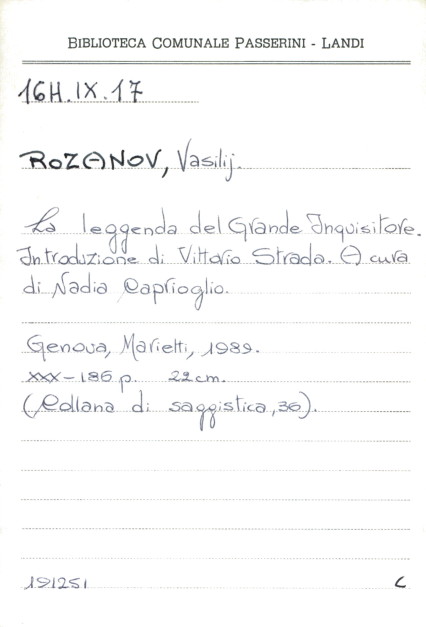 BIBLIOTECA COMUNALE PASSERINI - LANDI
16H.IX.17
ROZANOV, Vasilij.
La leggenda del Grande Inquisitore.
Introduzione di Vittorio Strada. A cura
di Nadia Caprioglio.
Genova, Marietti, 1989.
XXX-186 p. 22 cm.
(Collana di saggistica, 36).
191251 C